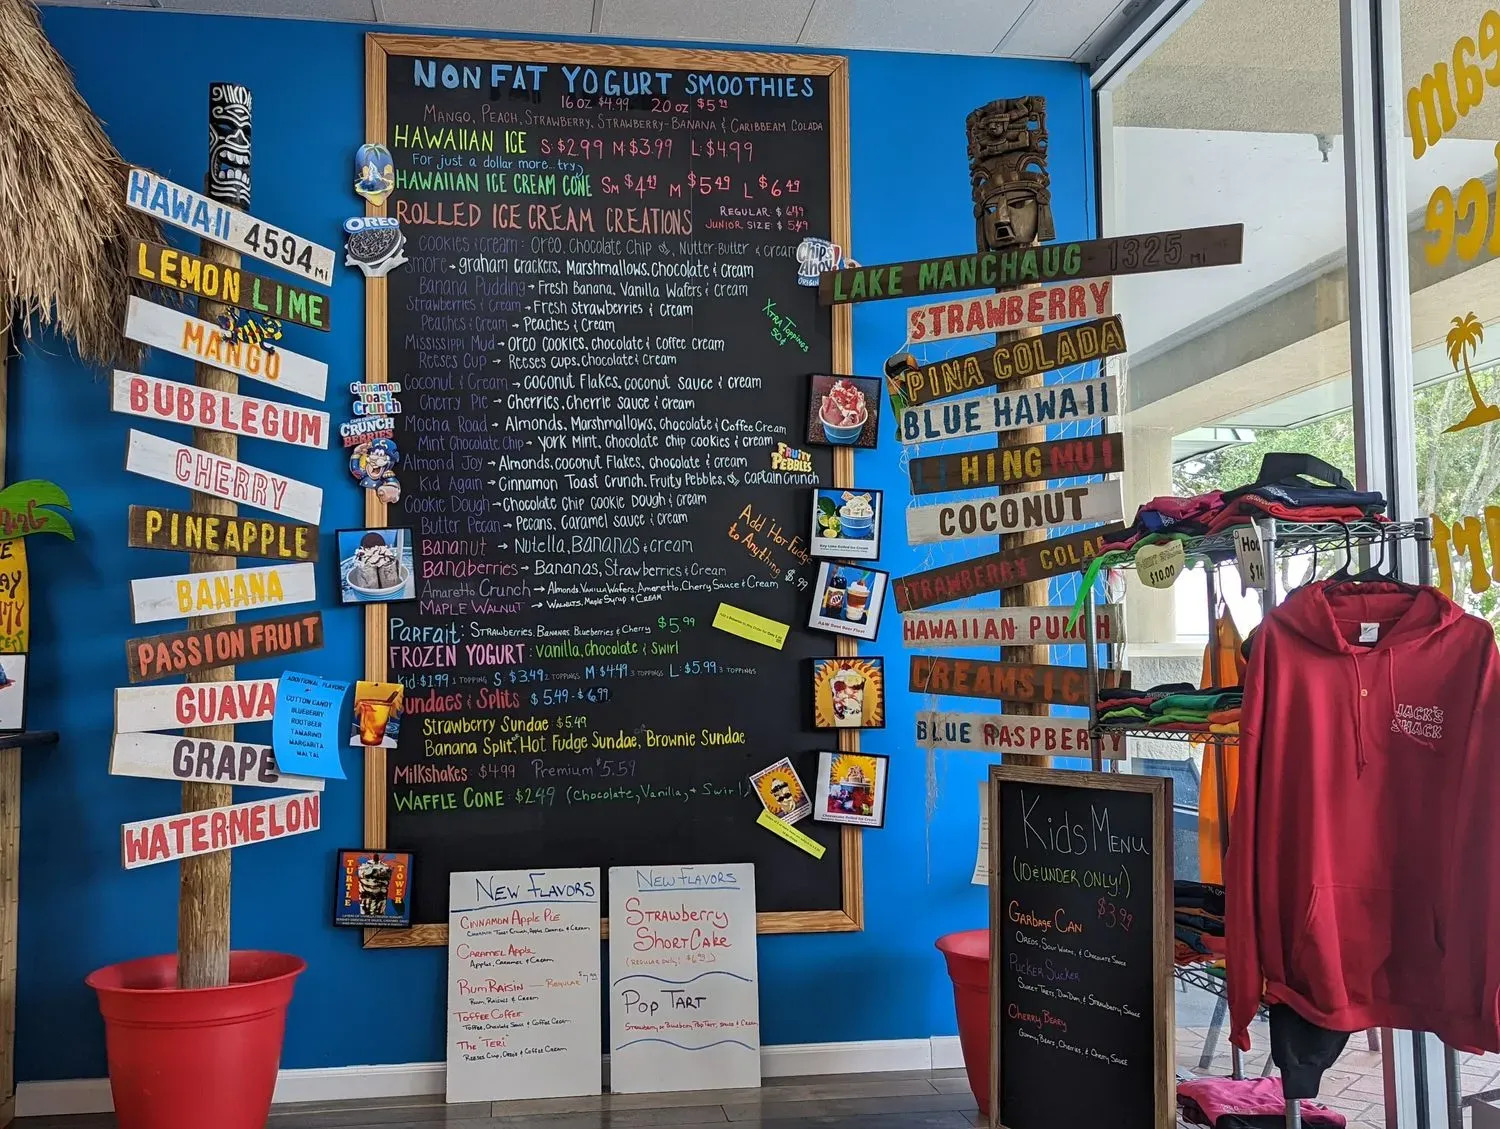 NON FAT YOGURT SMOOTHIES
16 oz $4.99 20 oz $5
MANGO, PEACH, STRAWBERRY, STRAWBERRY-BANANA & CARIBBEAM COLADA
HAWAIIAN ICE S: $2.99 M: $3.99 L: $4.99
For just a dollar more... try
HAWAIIAN ICE CREAM CONE SM $4.49 M $5.49 L $6.49
ROLLED ICE CREAM CREATIONS
REGULAR: $6.49
JUNIOR SIZE: $5.49
Cookies & Cream: Oreo, Chocolate Chip or Nutter-Butter & cream
Smore → graham crackers, Marshmallows, chocolate & cream
Banana Pudding → Fresh Banana, Vanilla Wafers & cream
Strawberries & Cream → Fresh strawberries & cream
Peaches & Cream → Peaches & Cream
Mississippi Mud → Oreo cookies, chocolate & Coffee cream
Reeses Cup → Reeses cups, chocolate & cream
Coconut & Cream → coconut Flakes, coconut sauce & cream
Cherry Pie → Cherries, Cherrie sauce & cream
Mocha Road → Almonds, Marshmallows, chocolate & Coffee Cream
Mint Chocolate Chip → York Mint, chocolate chip cookies & cream
Almond Joy → Almonds, coconut Flakes, chocolate & cream
Kid Again → Cinnamon Toast Crunch, Fruity Pebbles, or Captain Crunch
Cookie Dough → Chocolate Chip Cookie Dough & cream
Butter Pecan → Pecans, Caramel sauce & cream
Bananut → Nutella, Bananas & cream
Banaberries → Bananas, Strawberries & Cream
Amaretto Crunch → Almonds, Vanilla Wafers, Amaretto, Cherry Sauce & Cream
Maple Walnut → Walnuts, Maple Syrup & Cream
Parfait: Strawberries, Bananas, Blueberries & Cherry $5.99
FROZEN YOGURT: vanilla, chocolate & swirl
Kid: $1.99 1 TOPPING S: $3.49 2 TOPPINGS M: $4.49 3 TOPPINGS L: $5.99 3 TOPPINGS
undaes & Splits $5.49 - $6.99
Strawberry Sundae $5.49
Banana Split, Hot Fudge Sundae, Brownie Sundae
Milkshakes $4.99 Premium $5.59
WAFFLE CONE: $2.49 (Chocolate, Vanilla, & Swirl)
Xtra Toppings
50¢
Add Hot Fudge
to Anything
$.99
OREO
Chips Ahoy!
ORIGINAL
Cinnamon
Toast
Crunch
CRUNCH
BERRIES
FRUITY
PEBBLES
HAWAII 4594 MI
LEMON LIME
MANGO
BUBBLEGUM
CHERRY
PINEAPPLE
BANANA
PASSION FRUIT
GUAVA
GRAPE
WATERMELON
ADDITIONAL FLAVORS
COTTON CANDY
BLUEBERRY
ROOTBEER
TAMARIND
MARGARITA
MAI TAI
TURTLE
TOWER
LAKE MANCHAUG 1325 MI
STRAWBERRY
PINA COLADA
BLUE HAWAII
HING MUI
COCONUT
TRAWBERRY COLA
HAWAIIAN PUNCH
CREAMSIC
BLUE RASPBERRY
NEW FLAVORS
CINNAMON APPLE PIE
Cinnamon Toast Crunch, Apple, Caramel & Cream
CARAMEL APPLE
Apples, Caramel & Cream
RUM RAISIN — REGULAR $7.99
Rum, Raisins & Cream
TOFFEE COFFEE
Toffee, Chocolate Sauce & Coffee Cream
THE "TERI"
Reeses Cup, Oreo & Coffee Cream
NEW FLAVORS
STRAWBERRY
SHORTCAKE
(REGULAR ONLY! $6.99)
POP TART
Strawberry or Blueberry Pop Tart, sauce & Cream
Kids MENU
(10 & UNDER ONLY!)
$3.99
GARBAGE CAN
Oreos, Sour Worms, & Chocolate Sauce
PUCKER SUCKER
Sweet Tarts, Dum Dum, & Strawberry Sauce
CHERRY BEARY
Gummy Bears, Cherries, & Cherry Sauce
$10.00
JACK'S
SHACK